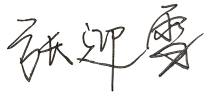 张迎雪